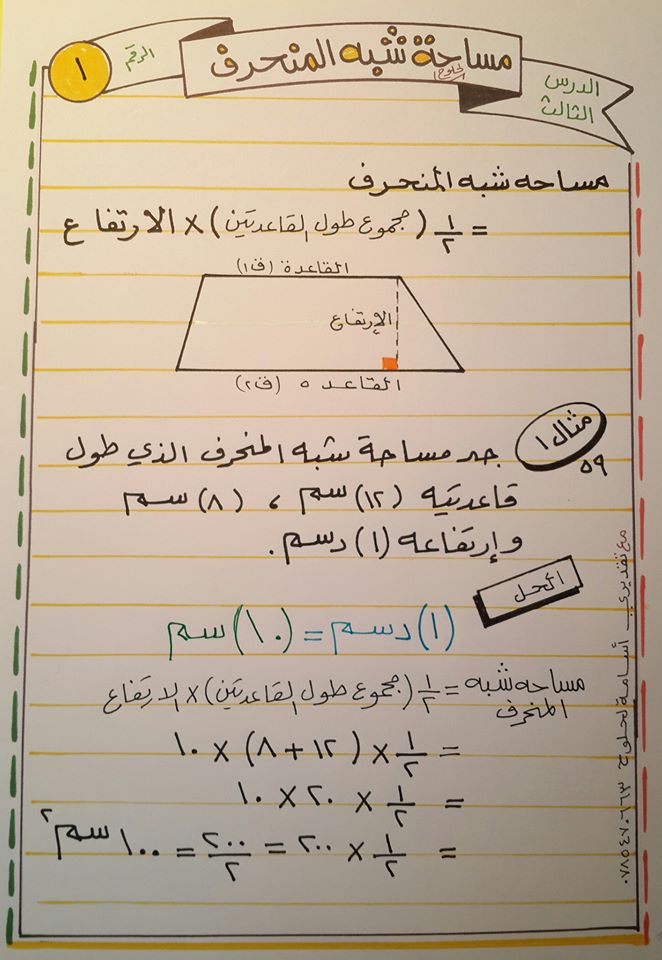 الدرس الثالث
مساحة شبه المنحرف
الرقم
١
مساحه شبه المنحرف
= ١/٢ (مجموع طول القاعدتين) × الارتفاع
القاعدة (ق١)
الإرتفاع
القاعده (ق٢)
مثال ١
٥٩
جد مساحة شبه المنحرف الذي طول
قاعدتيه (١٢) سم ، (٨) سم
وإرتفاعه (١) دسم.
الحل
(١) دسم = (١٠) سم
مساحه شبه المنحرف = ١/٢ (مجموع طول القاعدتين) × الارتفاع
= ١/٢ × (١٢ + ٨) × ١٠
= ١/٢ × ٢٠ × ١٠
= ١/٢ × ٢٠٠ = ٢٠٠/٢ = ١٠٠ سم٢
مع تقديري أسامة لحلوح ٠٧٨٥٤٧٠٦٦٣